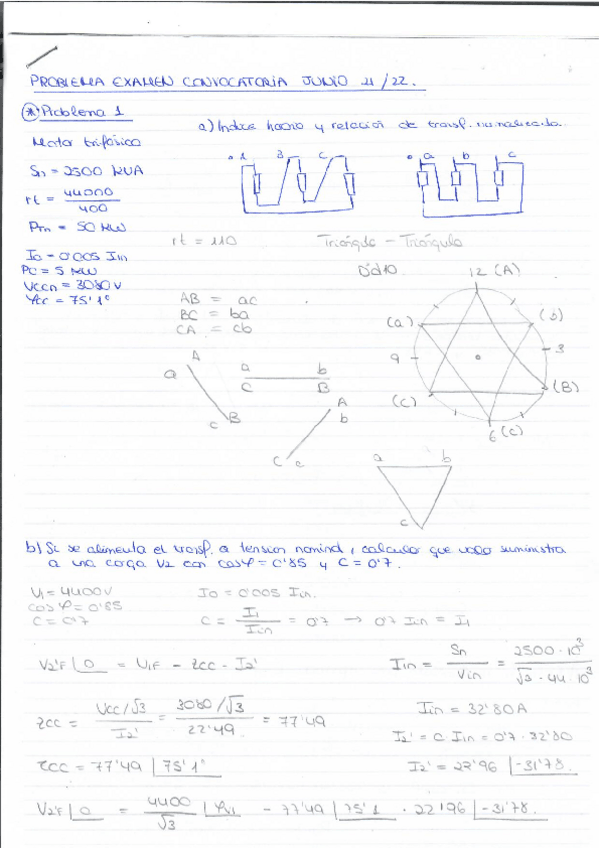 PROBLEMA EXAMEN CONVOCATORIA JUNIO 21/22.
* Problema 1
a) Indice horario y relación de transf. normalizada.
Motor trifásico
Sn = 2500 KVA
rt = 44000 / 400
Pm = 50 KW
I0 = 0'005 Iin
Pc = 5 KW
Vccn = 3080 V
φcc = 75'1°
A B C
a b c
rt = 110
Triángulo - Triángulo
Dd10
AB = ac
BC = ba
CA = cb
12 (A)
(a) (b)
9 3
(C) (B)
6 (c)
A
a
c B
a b
C B
A
b
C c
a b
c
b) Si se alimenta el transf. a tension nominal, calcular que valor suministra
a una carga V2 con cosφ = 0'85 y C = 0'7.
V1 = 4400V
cosφ = 0'85
C = 0'7
I0 = 0'005 Iin.
C = I1 / Iin = 0'7 → 0'7 Iin = I1
V2'F |0 = U1F - Zcc - I2'
Iin = Sn / Vin = 2500·10³ / √3 · 44·10³
Zcc = Vcc/√3 / I2' = 3080/√3 / 22'49 = 77'49
Iin = 32'80 A
I2' = C · Iin = 0'7 · 32'80
Zcc = 77'49 |75'1°
I2' = 22'96 |-31'78
V2'F |0 = 4400 / √3 |φv1 - 77'49 |75'1 · 22'96 |-31'78.